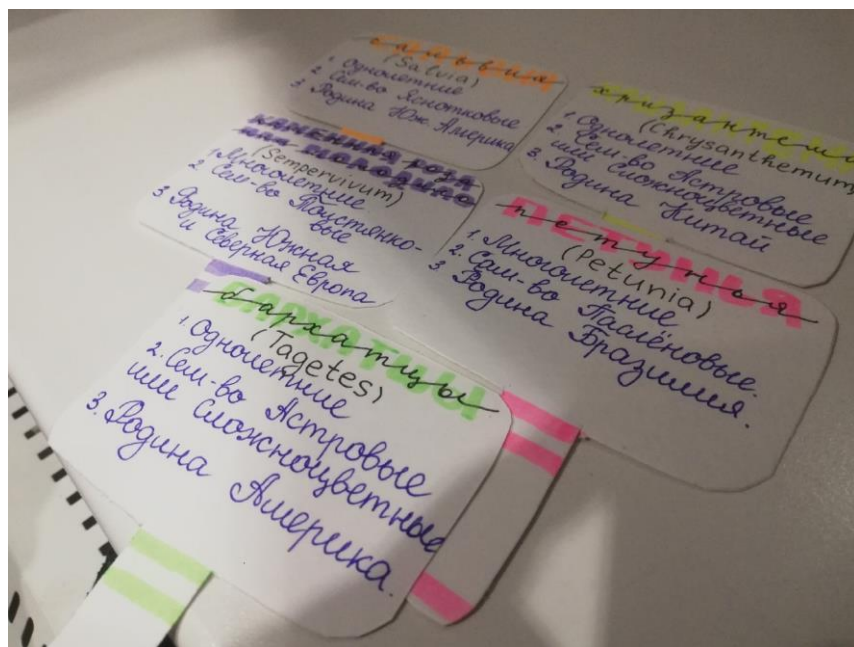 сальвия
(Salvia)
1. Однолетние
2. Сем-во Яснотковые
3. Родина Юж. Америка
хризантема
(Chrysanthemum)
1. Однолетние
2. Сем-во Астровые
или Сложноцветные
3. Родина Китай
КАМЕННАЯ РОЗА
ИЛИ МОЛОДИЛО
(Sempervivum)
1. Многолетние
2. Сем-во Толстянко-
вые
3. Родина Южная
и Северная Европа
петунья
(Petunia)
1. Многолетние
2. Сем-во Паслёновые.
3. Родина Бразилия.
бархатцы
(Tagetes)
1. Однолетние
2. Сем-во Астровые
или Сложноцветные
3. Родина Америка.